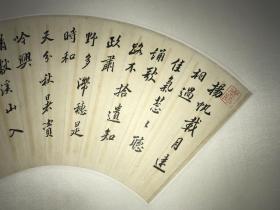 揚帆載月遠
相過
佳氣葱〻聽
誦歌
路不拾遺知
政肅
野多滯穗是
時和
天分秋暑資
吟興
晴獻溪山入